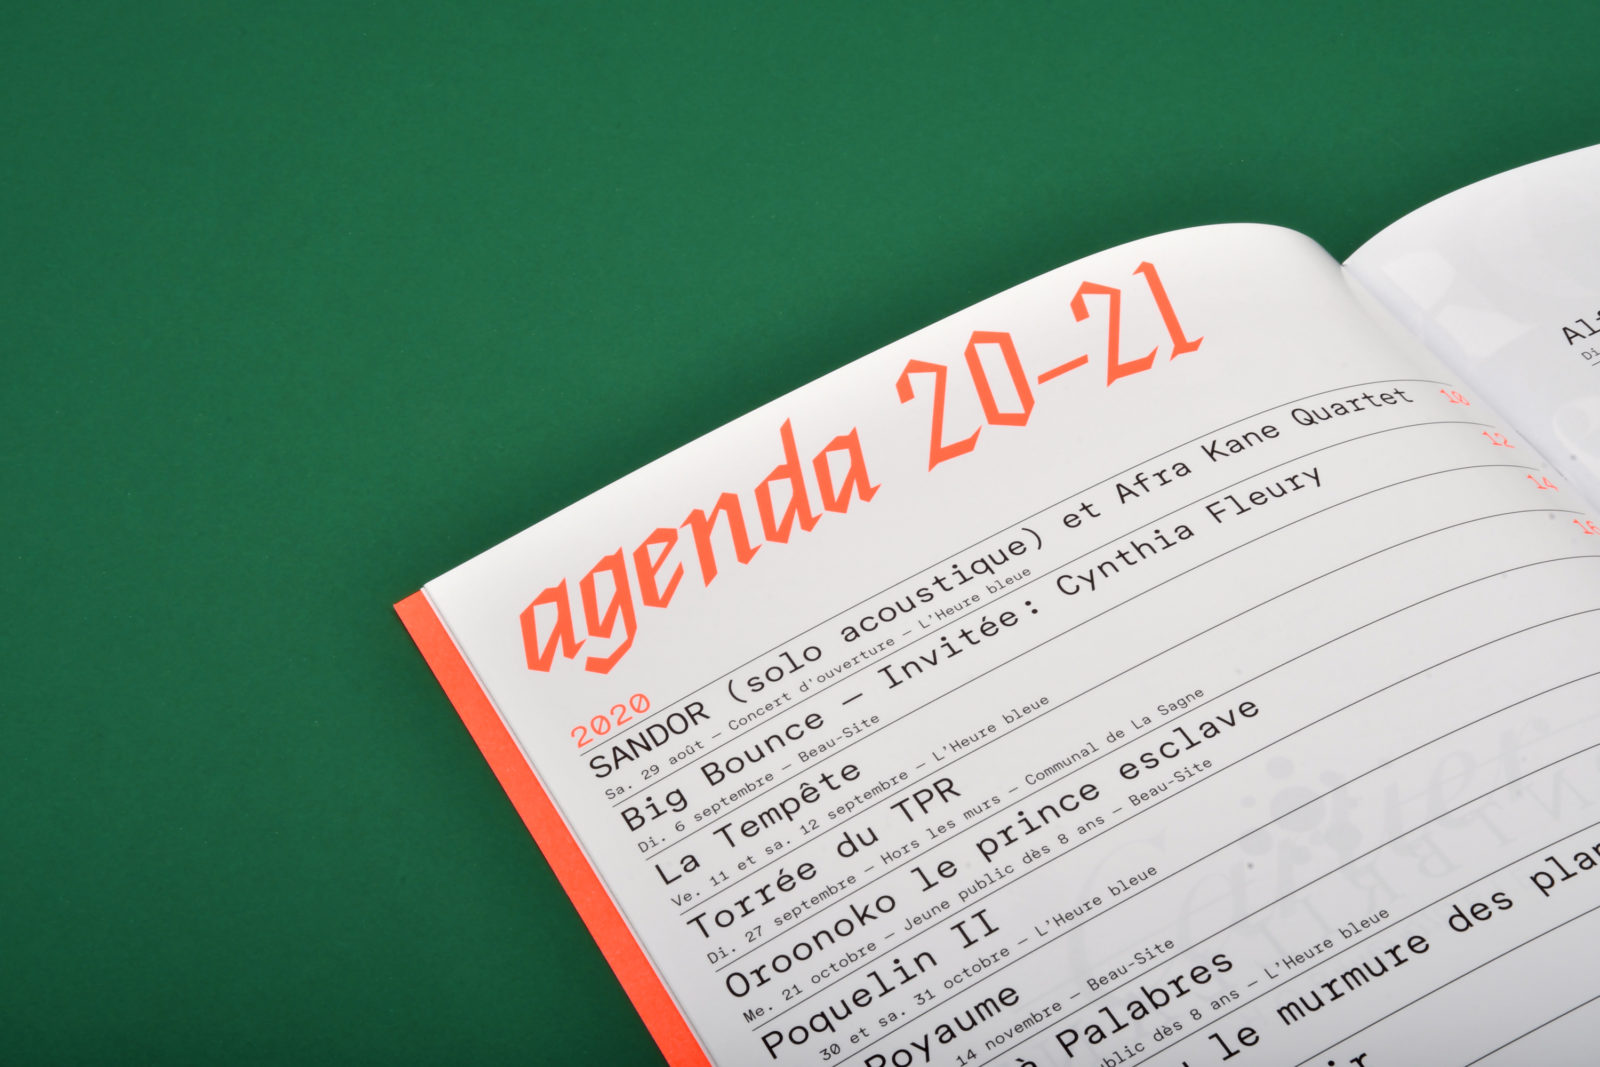 agenda 20–21
2020
SANDOR (solo acoustique) et Afra Kane Quartet 10
Sa. 29 août – Concert d'ouverture – L'Heure bleue
Big Bounce – Invitée: Cynthia Fleury 12
Di. 6 septembre – Beau-Site
La Tempête 14
Ve. 11 et sa. 12 septembre – L'Heure bleue
Torrée du TPR 16
Di. 27 septembre – Hors les murs – Communal de La Sagne
Oroonoko le prince esclave
Me. 21 octobre – Jeune public dès 8 ans – Beau-Site
Poquelin II
30 et sa. 31 octobre – L'Heure bleue
Royaume
14 novembre – Beau-Site
à Palabres
public dès 8 ans – L'Heure bleue
le murmure des
Di.